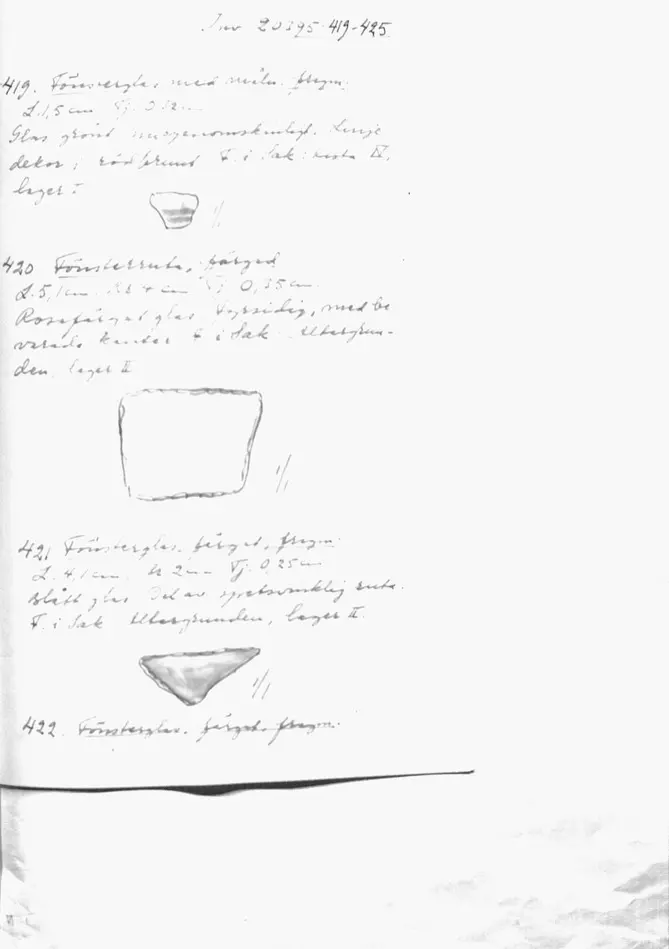 Inv 20395:419-425.
419. Fönsterglas med måln. fragm.
L. 1,5 cm Tj. 0,32 cm
Glas grönt ourgenomskinligt. Linje
dekor i rödbrunt F. i Sak:
lager I
1/1
420 Fönsterruta, färgad
L. 5,1 cm. Br 4 cm Tj 0,35 cm.
Rosafärgat glas Fyrsidig, med be
varade kanter F i Sak. Altargrun-
den, lager II
1/1
421 Fönsterglas, färgat, fragm.
L. 4,1 cm. Br 2 cm Tj. 0,25 cm
Blått glas Del av spetsvinklig ruta.
F. i Sak Altargrunden, lager II.
1/1
422. Fönsterglas, färgat, fragm.